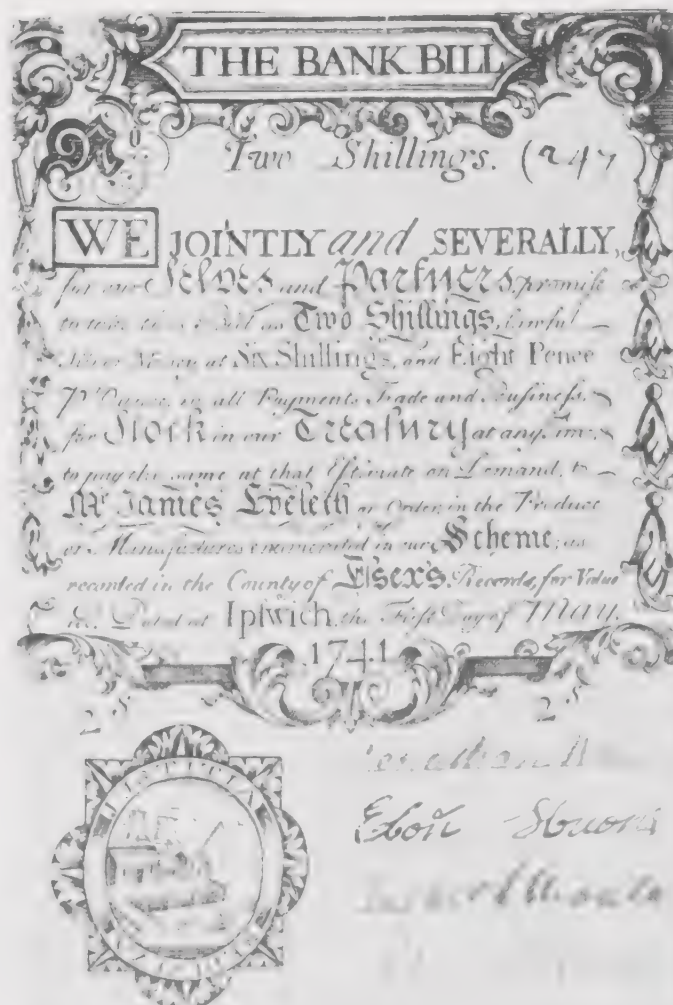 THE BANK BILL
Two Shillings. (247)
WE JOINTLY and SEVERALLY,
for our Selves and Partners, promise
to take this Bill as Two Shillings, lawful
Silver Money, at Six Shillings, and Eight Pence
Pr Ounce, in all Payments Trade and Business,
for Stock in our Treasury at any time
to pay the same at that Estimate on Demand, to
Mr James Eveleth or Order, in the Produce
or Manufactures enumerated in our Scheme; as
recorded in the County of Essex's, Records, for Value
Dated at Ipswich, the First Day of MAY,
1741
2s 2s
Eben